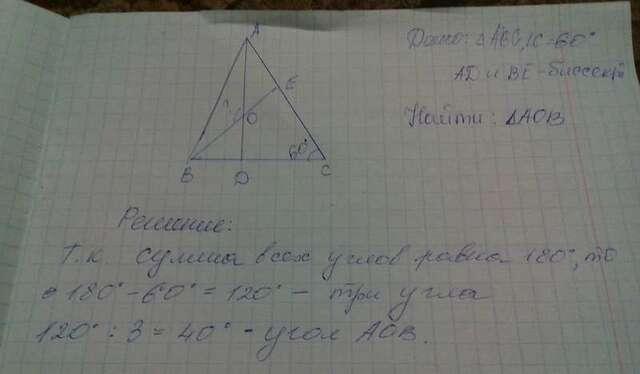 Дано: △ABC, ∠C=60°
AD и BE - биссект
Найти: △AOB
A
E
?
O
60°
B
D
C
Решение:
Т.к. сумма всех углов равна 180°, то
180° - 60° = 120° - три угла
120° : 3 = 40° - угол AOB.